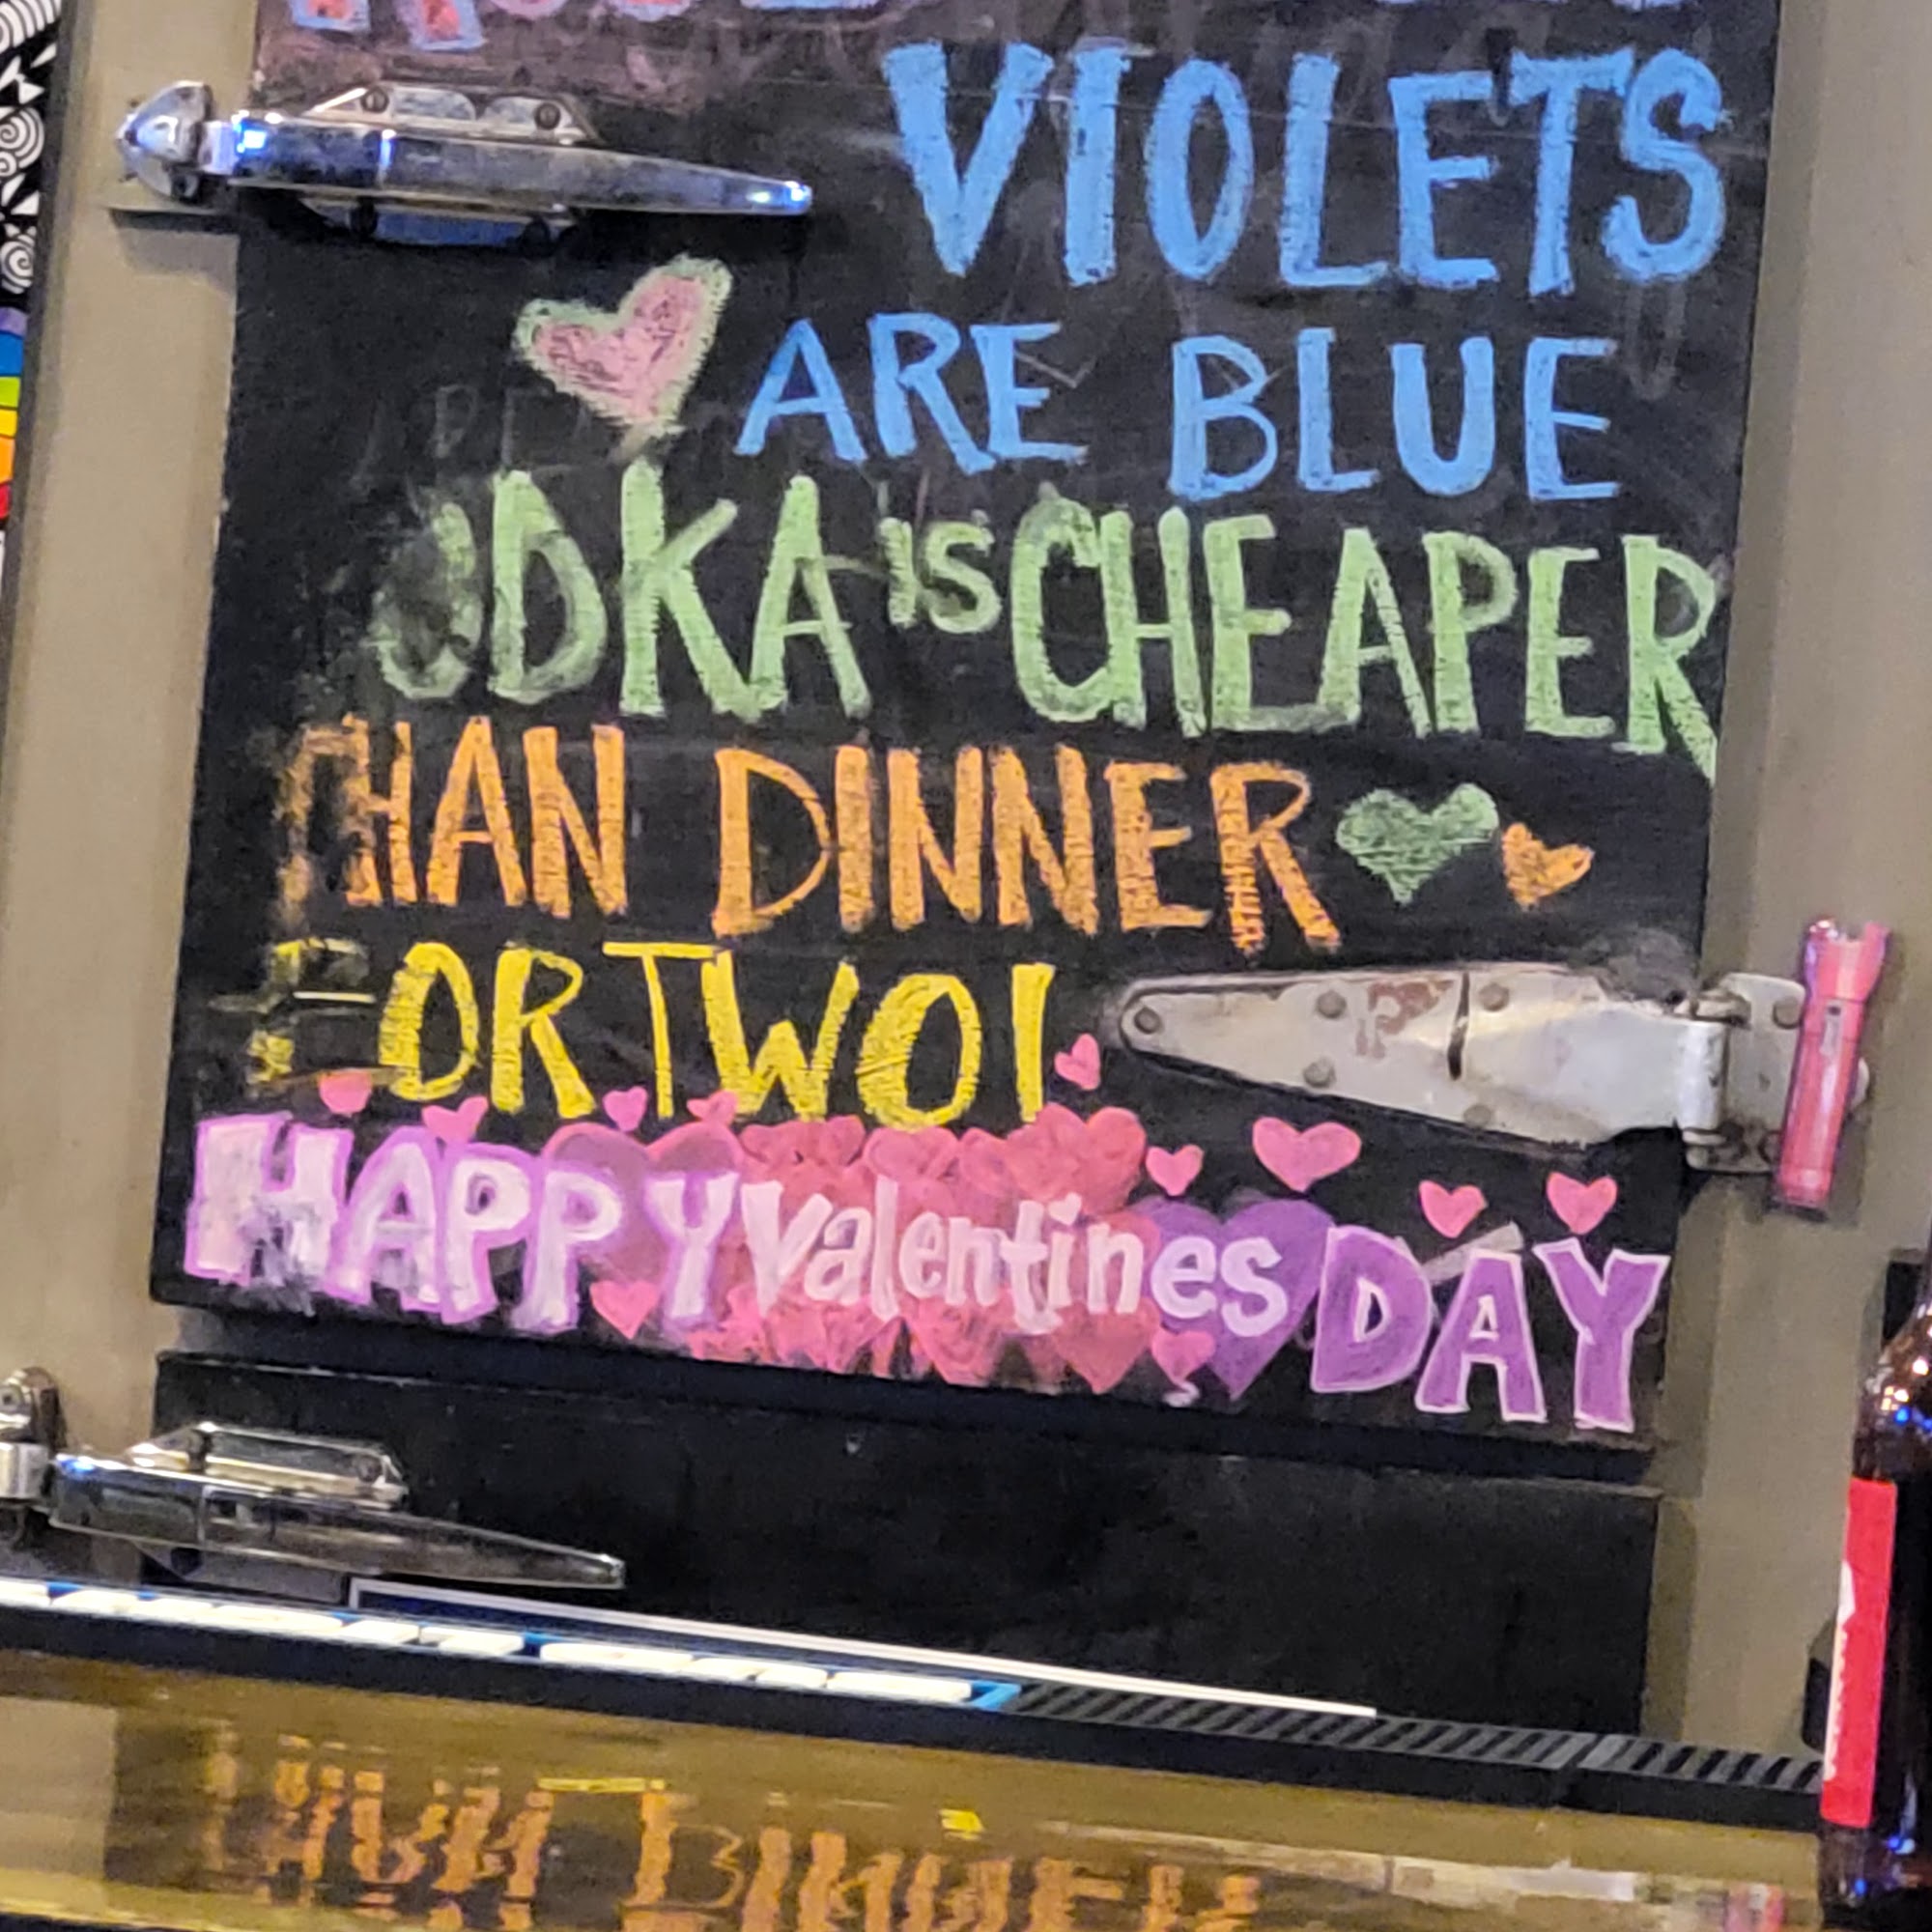 VIOLETS
ARE BLUE
ODKA IS CHEAPER
THAN DINNER
FOR TWO!
HAPPY Valentines DAY